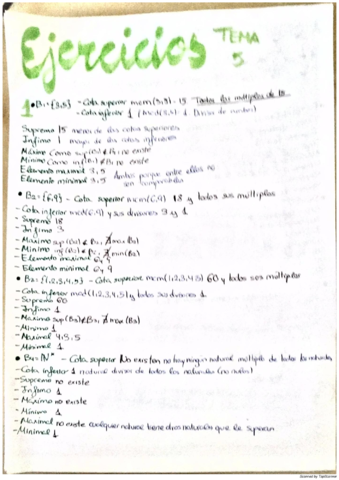 Ejercicios TEMA 5
1 • B₁ = {3,5} - Cota superior mcm(3,5) = 15 Todos los multiplos de 15
- Cota inferior 1 / mcd(3,5) = 1
Supremo 15 menor de las cotas superiores
Infimo 1 mayor de las cotas inferiores
Maximo Como sup(B₁) ∉ B₁ no existe
Minimo Como inf(B₁) ∉ B₁ no existe
Elemento maximal 3,5 Ambos porque entre ellos no
Elemento minimal 3,5 son comparables
• B₂ = {6,9} - Cota superior mcm(6,9) 18 y todos sus multiplos
- Cota inferior mcd(6,9) y sus divisores 3 y 1
- Supremo 18
- Infimo 3
- Maximo sup(B₂) ∉ B₂ ∄ max(B₂)
- Minimo inf(B₂) ∉ B₂ ∄ min(B₂)
- Elemento maximal 6, 9
- Elemento minimal 6, 9
• B₃ = {1,2,3,4,5} - Cota superior mcm(1,2,3,4,5) 60 y todos sus multiplos
- Cota inferior mcd(1,2,3,4,5) y todos sus divisores 1
- Supremo 60
- Infimo 1
- Maximo sup(B₃) ∉ B₃, ∄ max(B₃)
- Minimo 1
- Maximal 4, 3, 5
- Minimal 1
• B₄ = ℕ* - Cota superior No existen no hay ningun natural multiplo de todos los naturales
- Cota inferior 1 natural divisor de todos los naturales
- Supremo no existe
- Infimo 1
- Maximo no existe
- Minimo 1
- Maximal no existe cualquier natural tiene otro natural que le supera
- Minimal 1